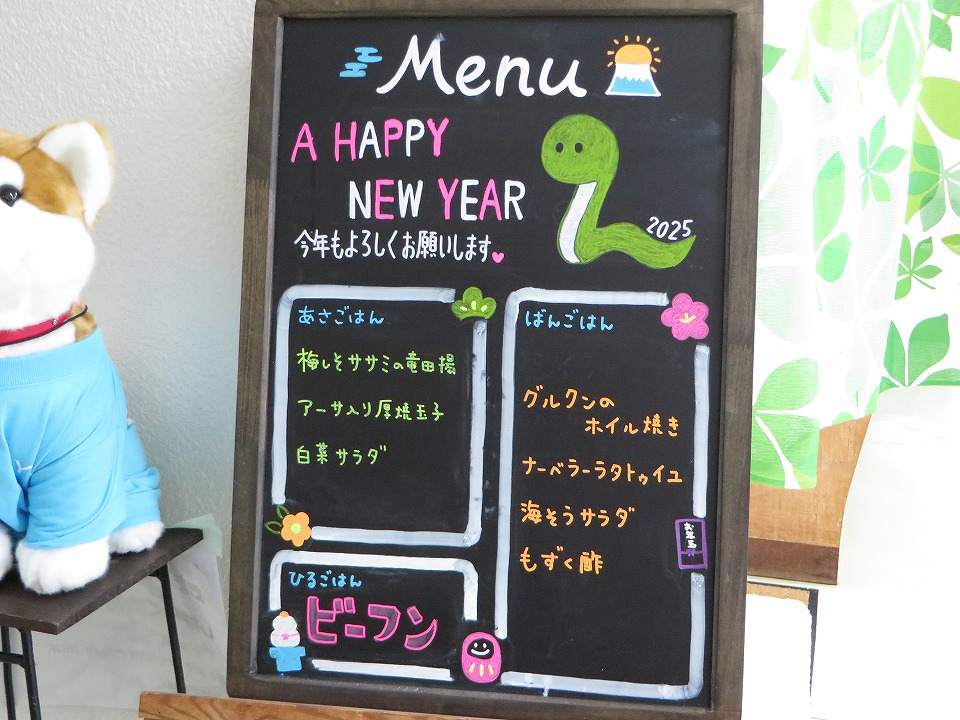 Menu
A HAPPY
NEW YEAR
2025
今年もよろしくお願いします
あさごはん
梅しそササミの竜田揚
アーサ入り厚焼玉子
白菜サラダ
ひるごはん
ビーフン
ばんごはん
グルクンの
ホイル焼き
ナーベラーラタトゥイユ
海そうサラダ
もずく酢
お年玉